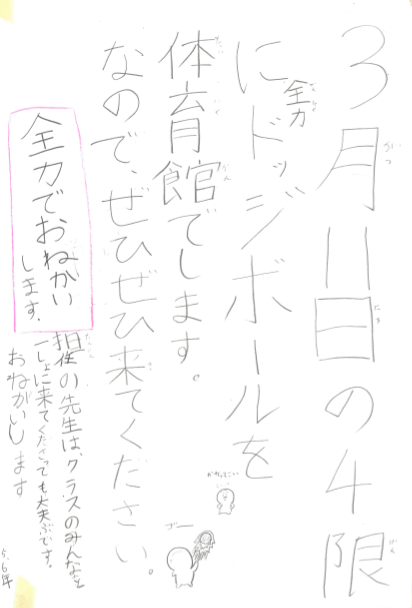 3月11日の4限
に全力ドッジボールを
体育館でします。
なので、ぜひぜひ来てください。
全力でおねがい
します。
担任の先生は、クラスのみんなと
一しょに来てくださっても大丈ぶです。
おねがいします
5,6年
ゴー